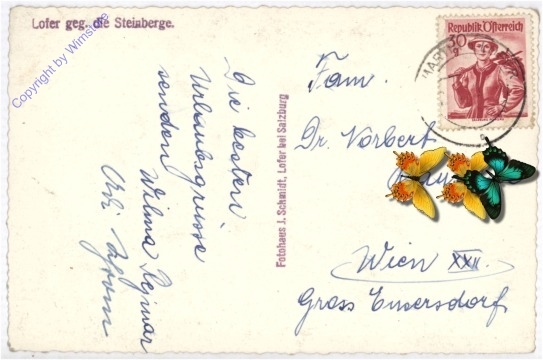 Lofer geg. die Steinberge.
Copyright by Wimstore
Die besten
Urlaubsgrüsse
senden
Wilma
Fotohaus J. Schmidt, Lofer bei Salzburg
Republik Österreich
30
Fam.
Dr. Norbert
Wien XXII.
Gross Enzersdorf